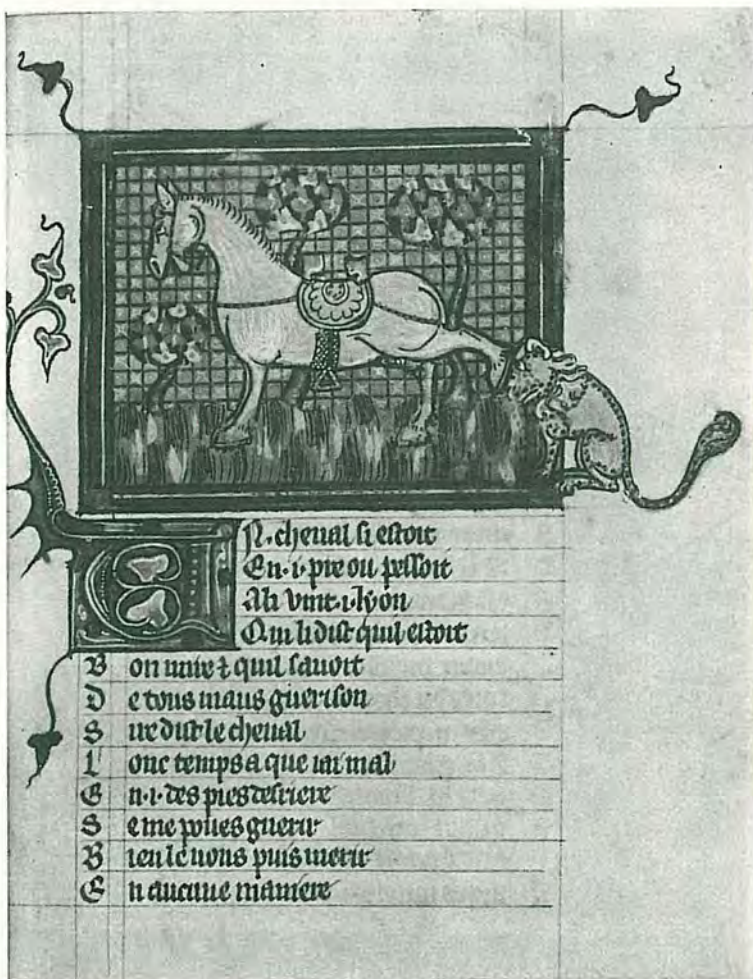 UN cheual si estoit
En .i. pre ou pessoit
A li vint .i. lyon
Qui li dist quil estoit
Bon mire ⁊ quil sauoit
De tous maus guerison
Sire dist le cheual
Lonc temps a que iai mal
En .i. des pies derriere
Se me poues guerir
Bien le uous puis merir
En aucune maniere